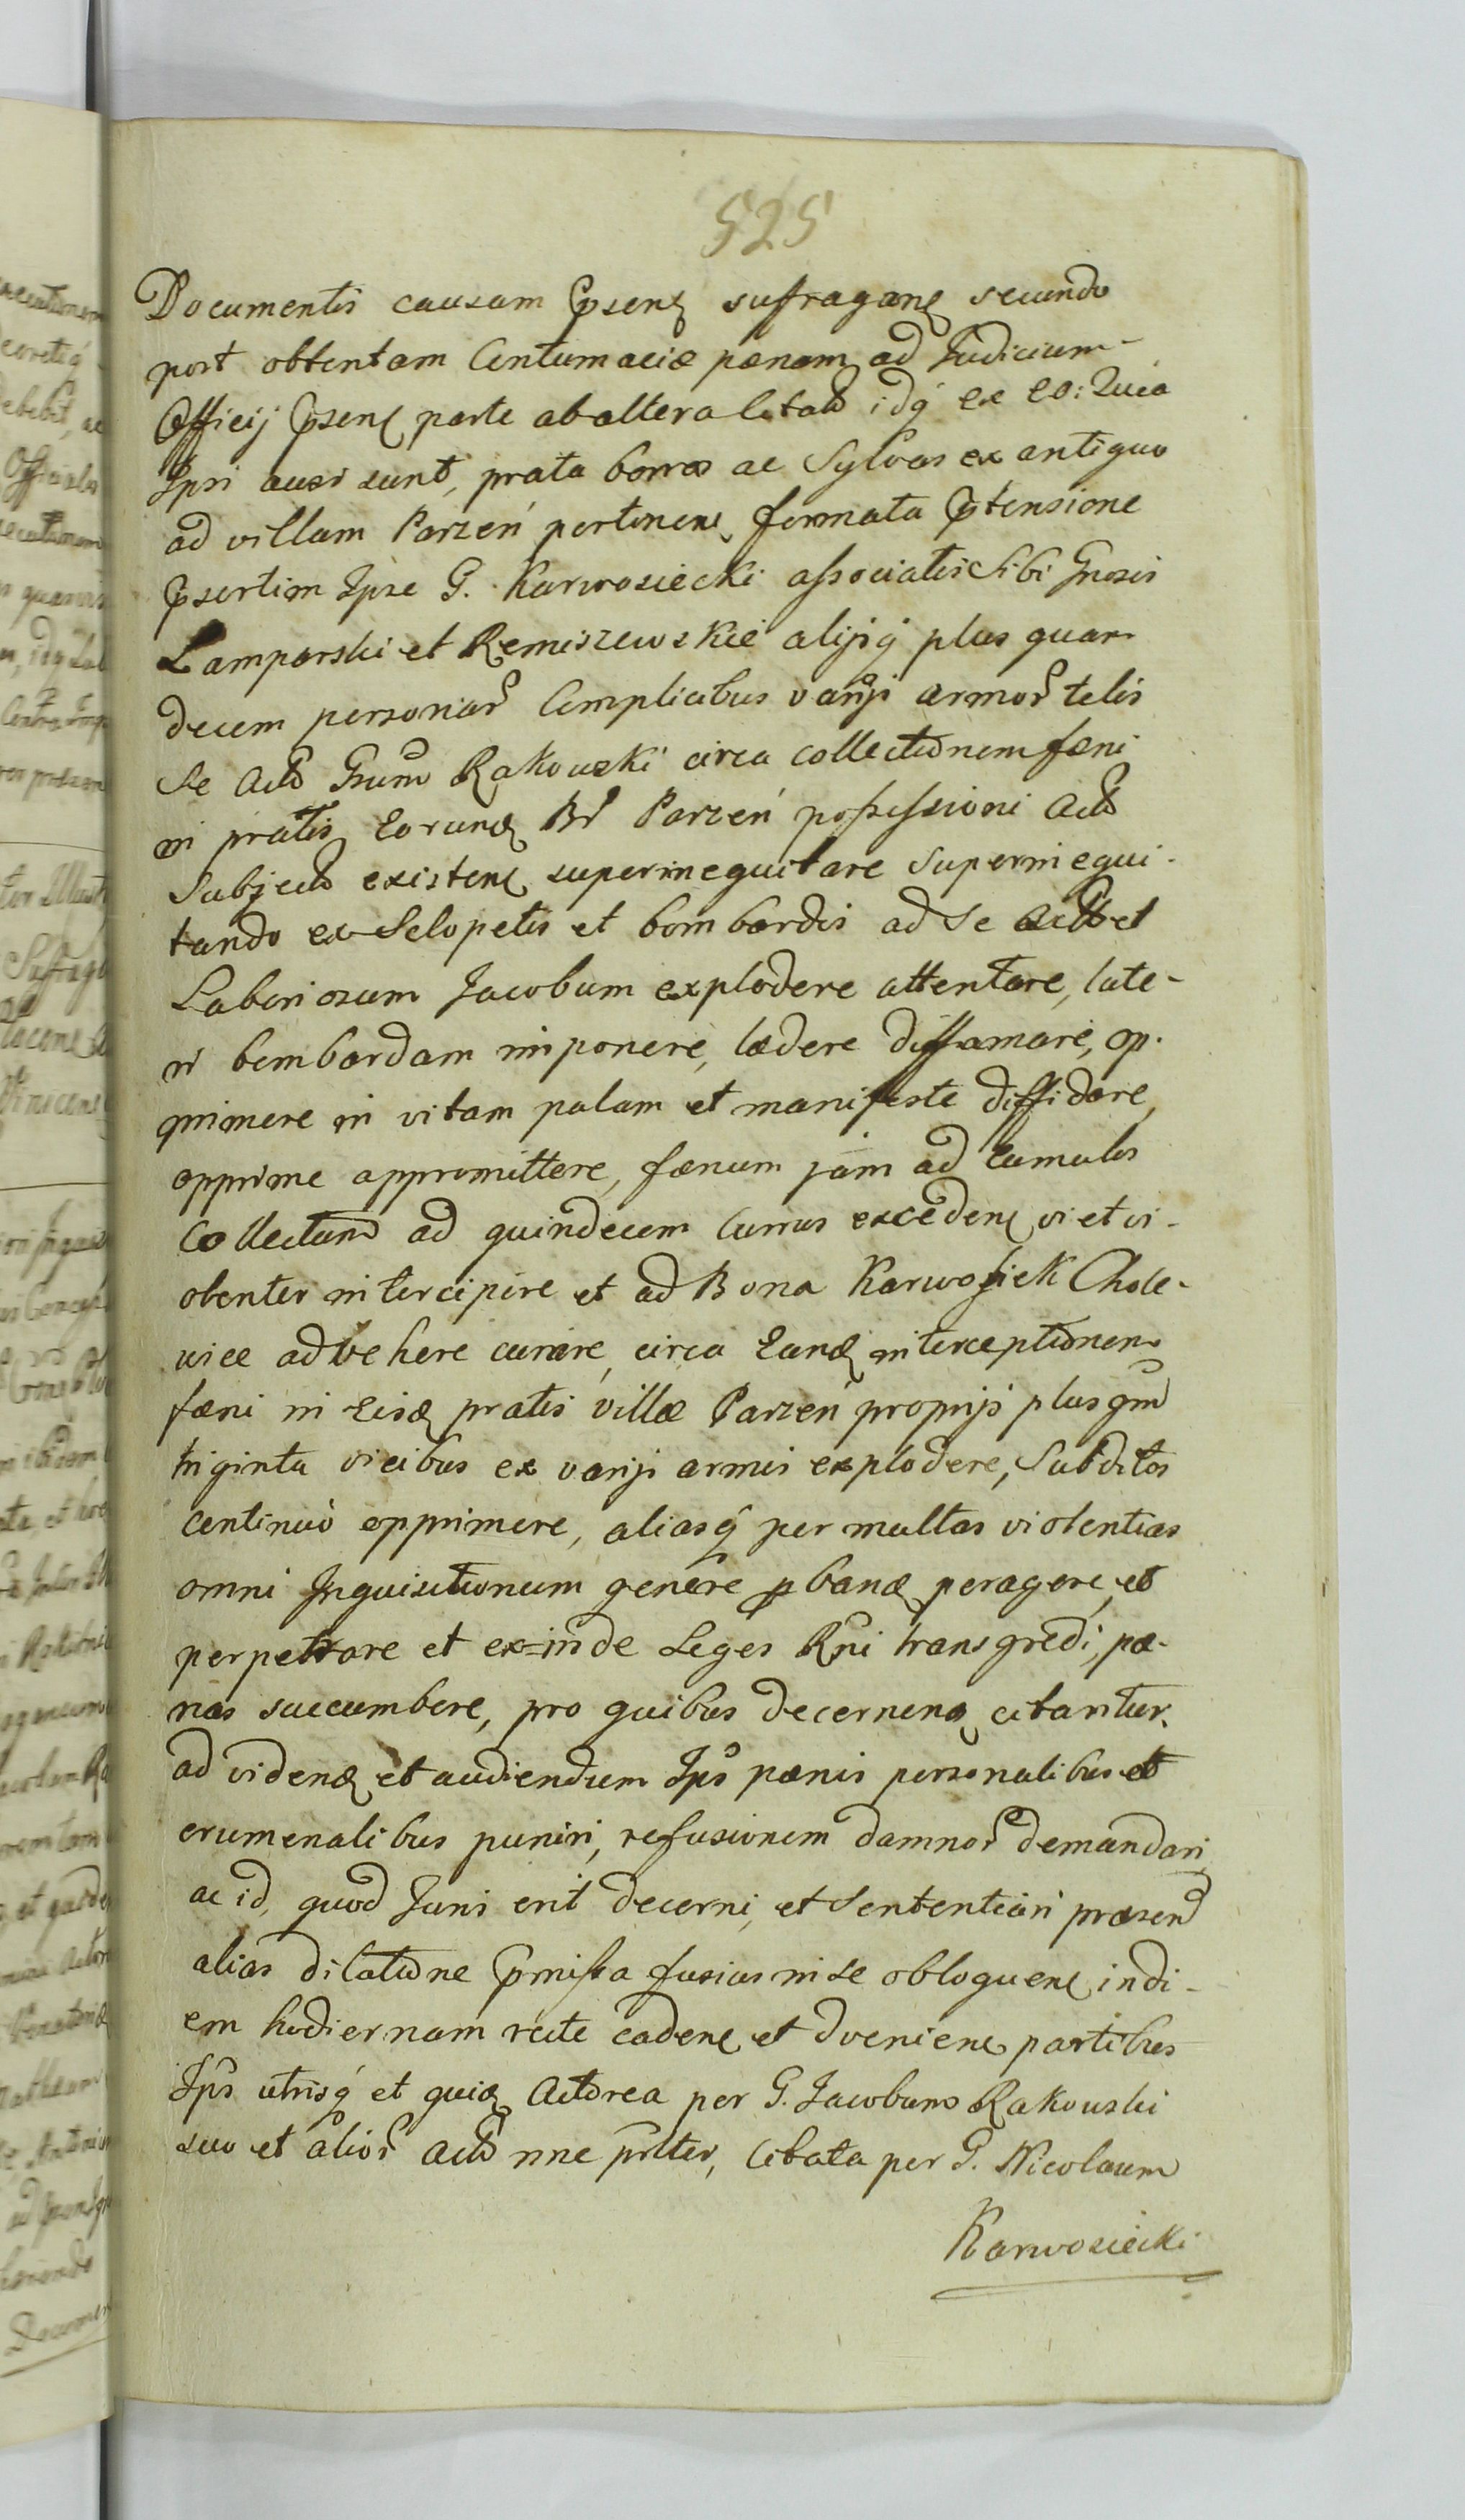 525
Documentis causam Psen suffragane secundo
post obtentam Contumaciæ pænam ad Judicium
Officij Psen parte ab altera citato idq ex eo: Quia
Ipsi ausi sunt, prata borras ac Sylvas ex antiquo
ad villam Parzeń pertinen, formata Ptensione
Psertim Ipse G. Karwosiecki associatis Sibi Gnosis
Lamparski et Remiszewskie alijsq plus quam
decem personar Complicibus varijs armor telis
Se Acto Gnum Rakowski circa collectionem fæni
in pratis Eorund Br Parzeń possessioni Acto
Subjecto existen superinequitare Superinequi-
tando ex Selopetis et bombardis ad Se Acto et
Laboriosum Jacobum explodere attentare, late-
ri bombardam imponere, lædere diffamare, op-
primere in vitam palam et manifeste diffidare,
opprime appromittere, fænum jam ad Cumulos
Collectum ad quindecem Currus exceden vi et vi-
olenter intercipere et ad Bona Karwosiek Chole-
wice advehere curare, circa Eand interceptionem
fæni in Eisd pratis villæ Parzeń proprijs plus qm
triginta vicibus ex varijs armis explodere, Subditos
continuò opprimere, aliasq per multas violentias
omni Inquisitionum genere pband peragere, et
perpetrare et ex=inde Leges Rni transgredi, pæ-
nas succumbere, pro quibus decernend citantur.
ad vidend et audiendum Ips pænis personalibus et
crumenalibus puniri, refusionem damnor demandari
ac id, quod Juris erit decerni, et Sententiari præsen
alias dilatione Pmissa fusius in se obloquen in di-
em hodiernam recte caden et dvenien partibus
Ips utrisq et quid Actorea per G. Jacobum Rakowski
suo et alior Acto nne prlter, Citata per G. Nicolaum
Karwosiecki